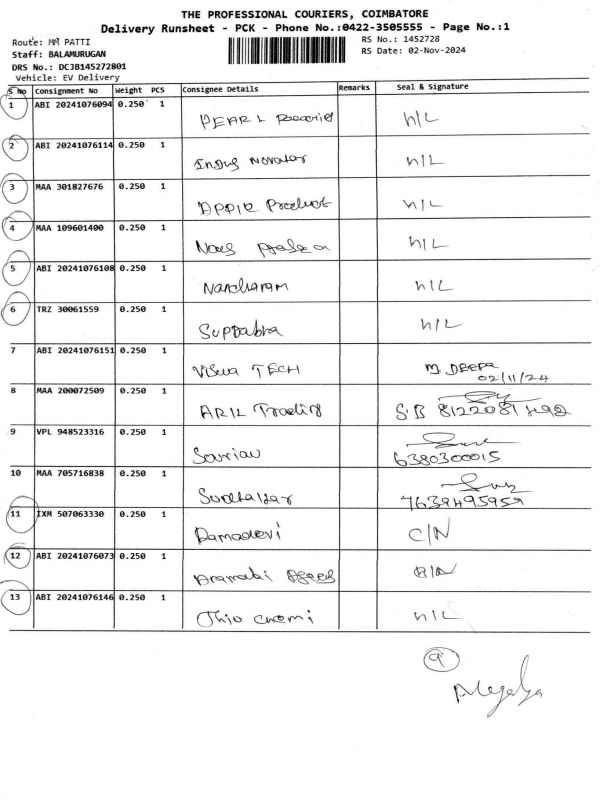 THE PROFESSIONAL COURIERS, COIMBATORE
Delivery Runsheet - PCK - Phone No.:0422-3505555 - Page No.:1
Route: MM PATTI
RS No.: 1452728
Staff: BALAMURUGAN
RS Date: 02-Nov-2024
DRS No.: DCJB145272801
Vehicle: EV Delivery
S No Consignment No Weight PCS Consignee Details Remarks Seal & Signature
1 ABI 20241076094 0.250 1 PEARL N/L
2 ABI 20241076114 0.250 1 Indus Novator N/L
3 MAA 301827676 0.250 1 Product N/L
4 MAA 109601400 0.250 1 N/L
5 ABI 20241076108 0.250 1 N/L
6 TRZ 30061559 0.250 1 N/L
7 ABI 20241076151 0.250 1 Viswa TECH M. DEEPA
02/11/24
8 MAA 200072509 0.250 1 ARIL Trading S.B 8122081492
9 VPL 948523316 0.250 1 Souriau 6380300015
10 MAA 705716838 0.250 1 Sudhakar 7639495959
11 IXM 507063330 0.250 1 Ramadevi C/N
12 ABI 20241076073 0.250 1
13 ABI 20241076146 0.250 1 N/L
9